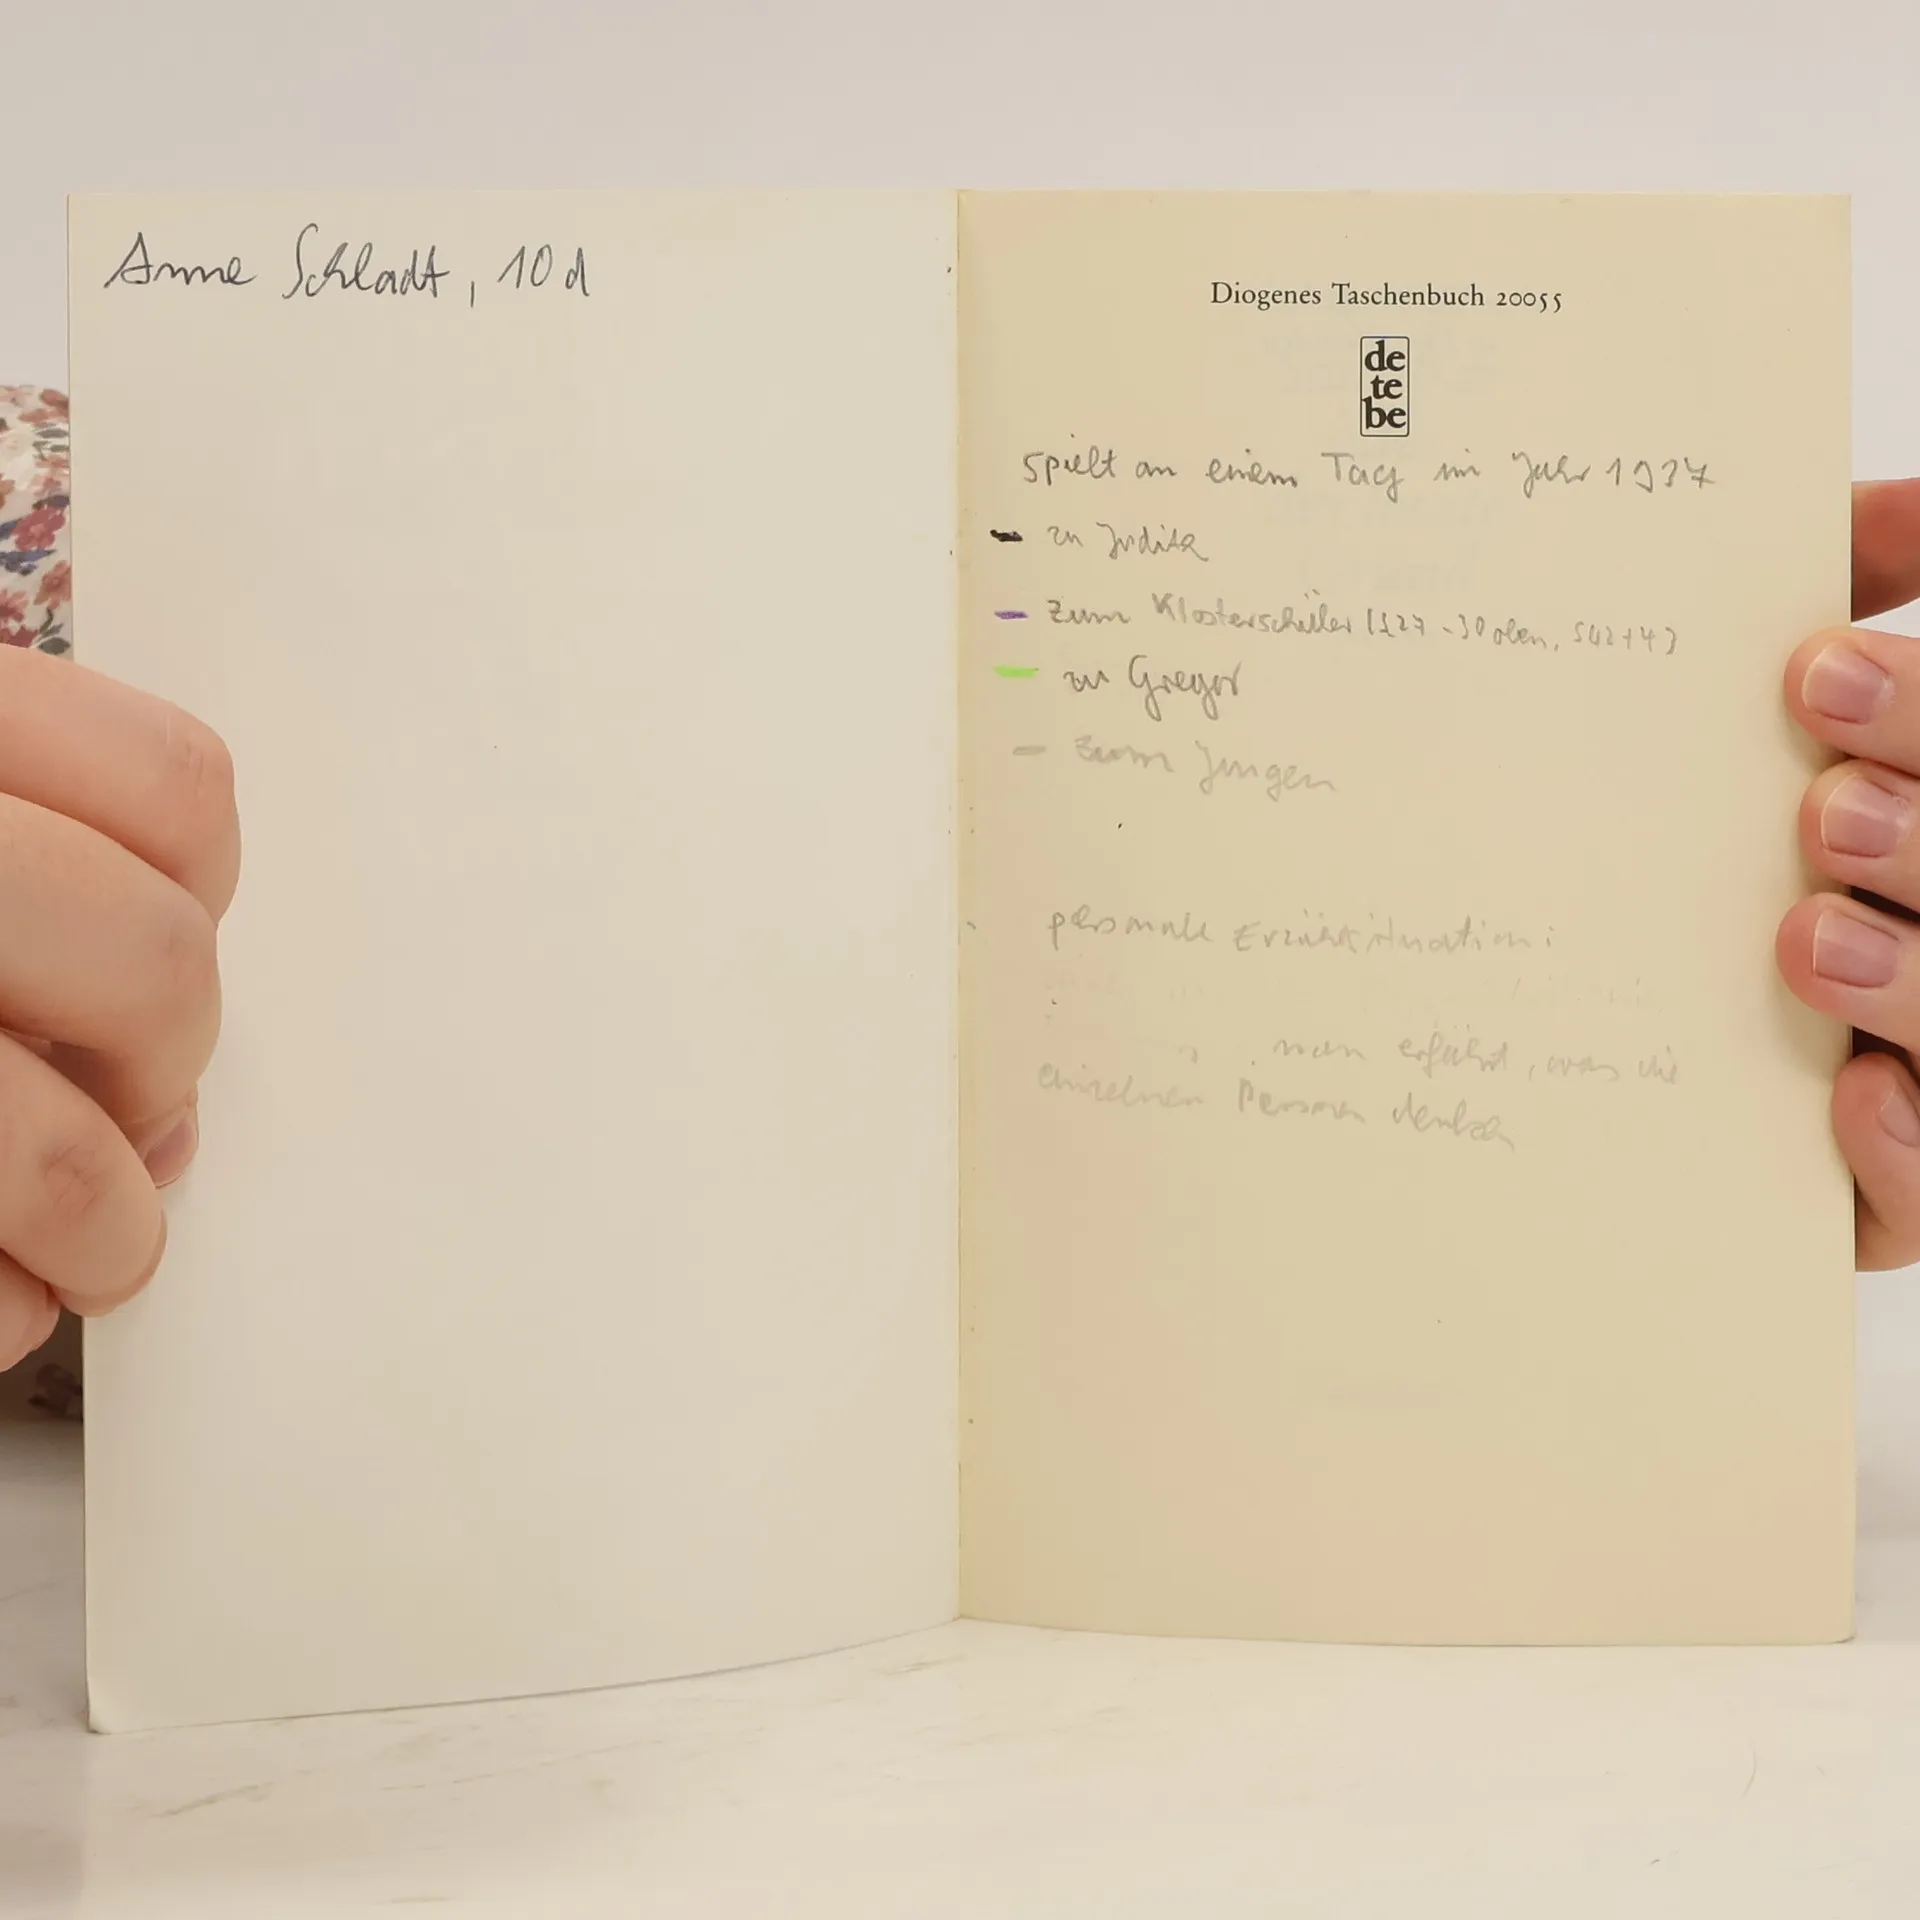 Anne Schladt, 10d
Diogenes Taschenbuch 20055
de
te
be
spielt an einem Tag im Jahr 1937
zu Judith
zum Klosterschüler (S27-30 oben, S42+43
zu Gregor
zum Jungen
personale Erzählsituation:
man erfährt, was die
einzelnen Personen denken